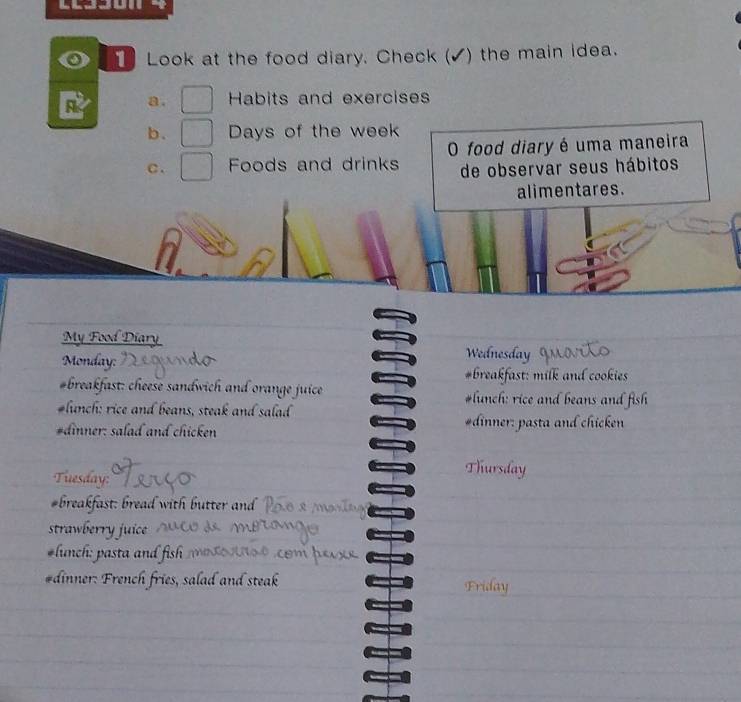 LESSON 4
1 Look at the food diary. Check (✓) the main idea.
a. Habits and exercises
b. Days of the week
c. Foods and drinks
O food diary é uma maneira
de observar seus hábitos
alimentares.
My Food Diary
Monday: Segundo
*breakfast: cheese sandwich and orange juice
*lunch: rice and beans, steak and salad
*dinner: salad and chicken
Tuesday: Terço
*breakfast: bread with butter and Pão e
strawberry juice suco de morango
*lunch: pasta and fish macarrão com peixe
*dinner: French fries, salad and steak
Wednesday quarto
*breakfast: milk and cookies
*lunch: rice and beans and fish
*dinner: pasta and chicken
Thursday
Friday